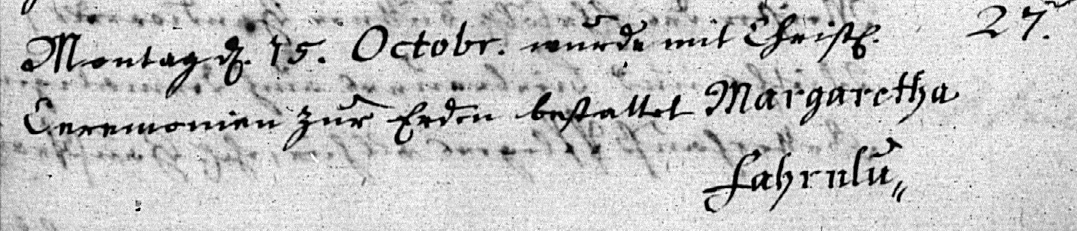 Montag d. 15. Octobr. wurde mit Christl. 27.
Ceremonien zur Erden bestattet Margaretha
Fahrnlu„